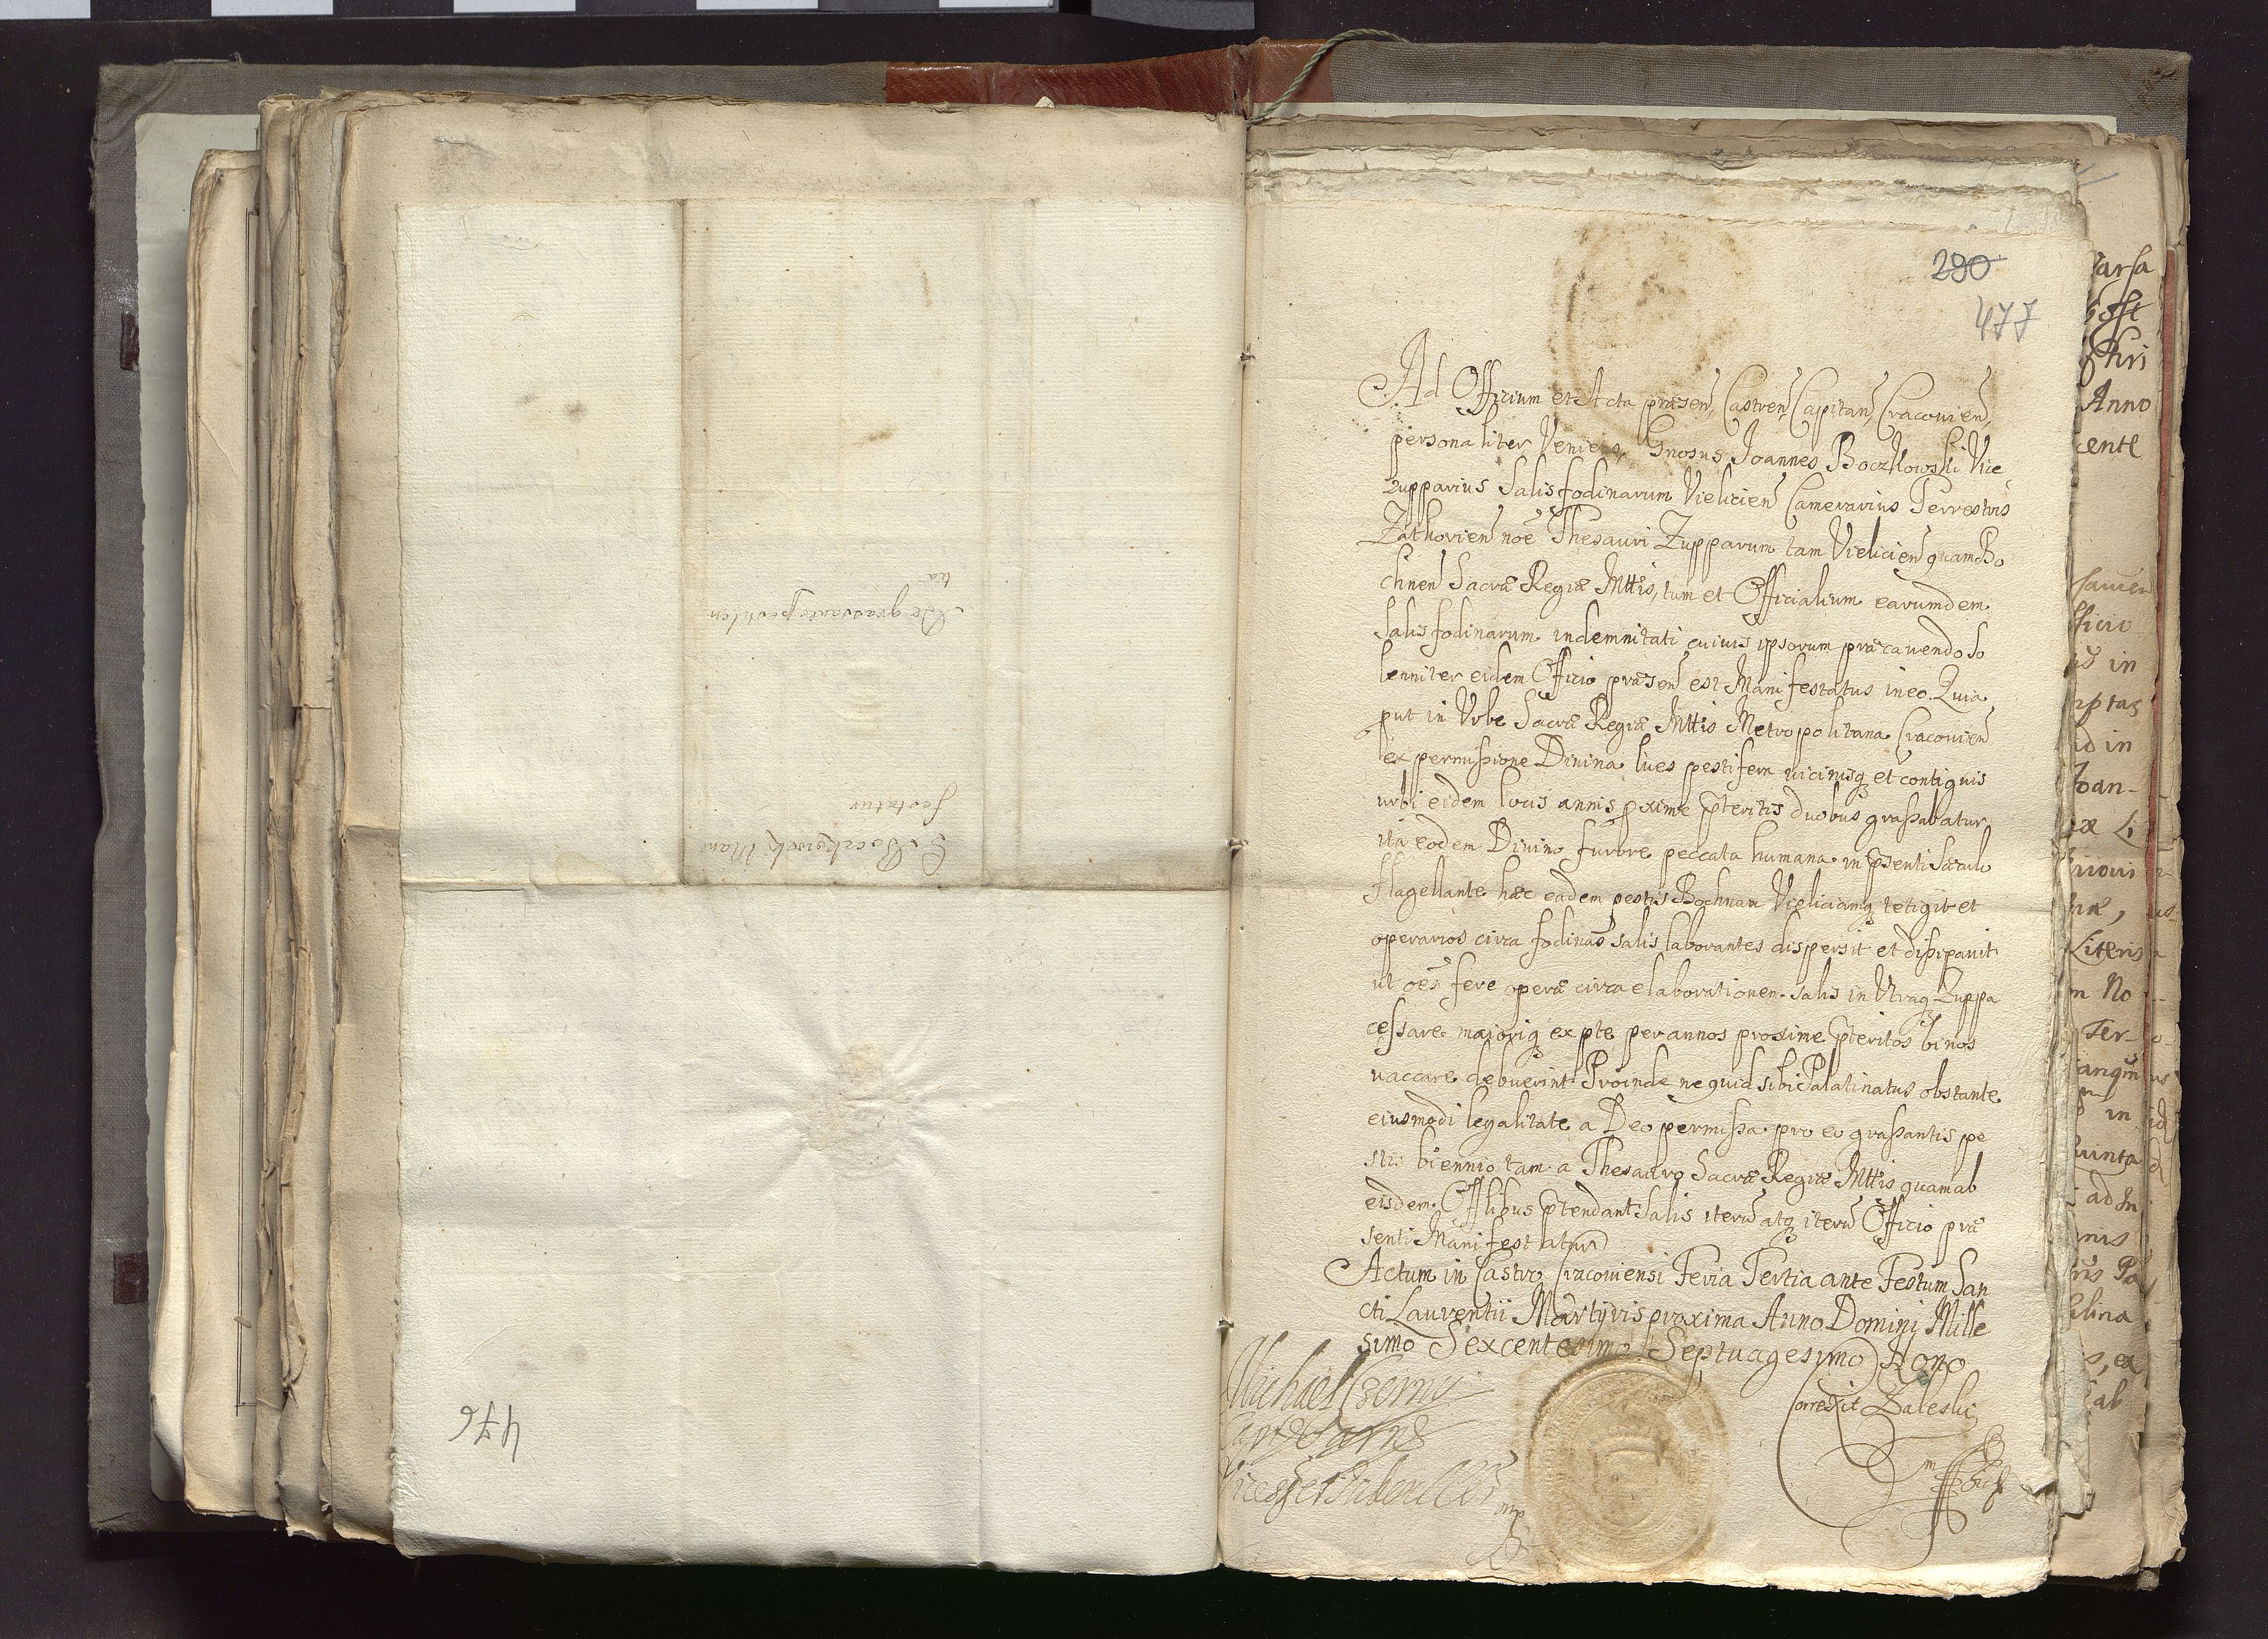 G Boczkowski Mani
festatur
De grassante pestilen
tia
476
280
477
Ad Officium et Acta præsen Castren Capitan Cracovien
personaliter Veniens Gnosus Joannes Boczkowski Vice
zupparius Salisfodinarum Vieliciens Camerarius Terrestris
Zathorien noe Thesauri Zupparum tam Vielicien quam Bo
chnen Sacræ Regiæ Mttis, tum et Officialium earumdem
Salisfodinarum indemnitati cuivis ipsorum præcavendo so
lenniter eidem Officio præsen est Manifestatus in eo. Quia
put in Vrbe Sacræ Regiæ Mttis Metropolitana Cracovien
ex permissione Divina lues pestifera vicinisq et contiguis
urbi eidem locis annis pxime pteritis duobus grassabatur
ita eodem Divino furore peccata humana in psenti sæculo
flagellante hæc eadem pestis Bochnam Vieliciamq tetigit et
operarios circa fodinas salis laborantes dispersit et dissipavit
ut oes fere operæ circa elaborationem salis in Vtraq Zuppa
cessare maioriq ex pte per annos proxime pteritos binos
vaccare debuerint Proinde ne quid sibi Palatinatus obstante
eiusmodi legalitate a Deo permissa pro eo grassantis pe
stis biennio tam a Thesauro Sacræ Regiæ Mttis quam ab
eisdem Offlibus ptendant Salis iterū atq iterū Officio præ
senti Manifestatur
Actum in Castro Cracoviensi Feria Tertia ante Festum San
cti Laurentii Martyris proxima Anno Domini Mille
simo Sexcentesimo Septuagesimo Nono
Michael Czerny
Correxit Zaleski
mp